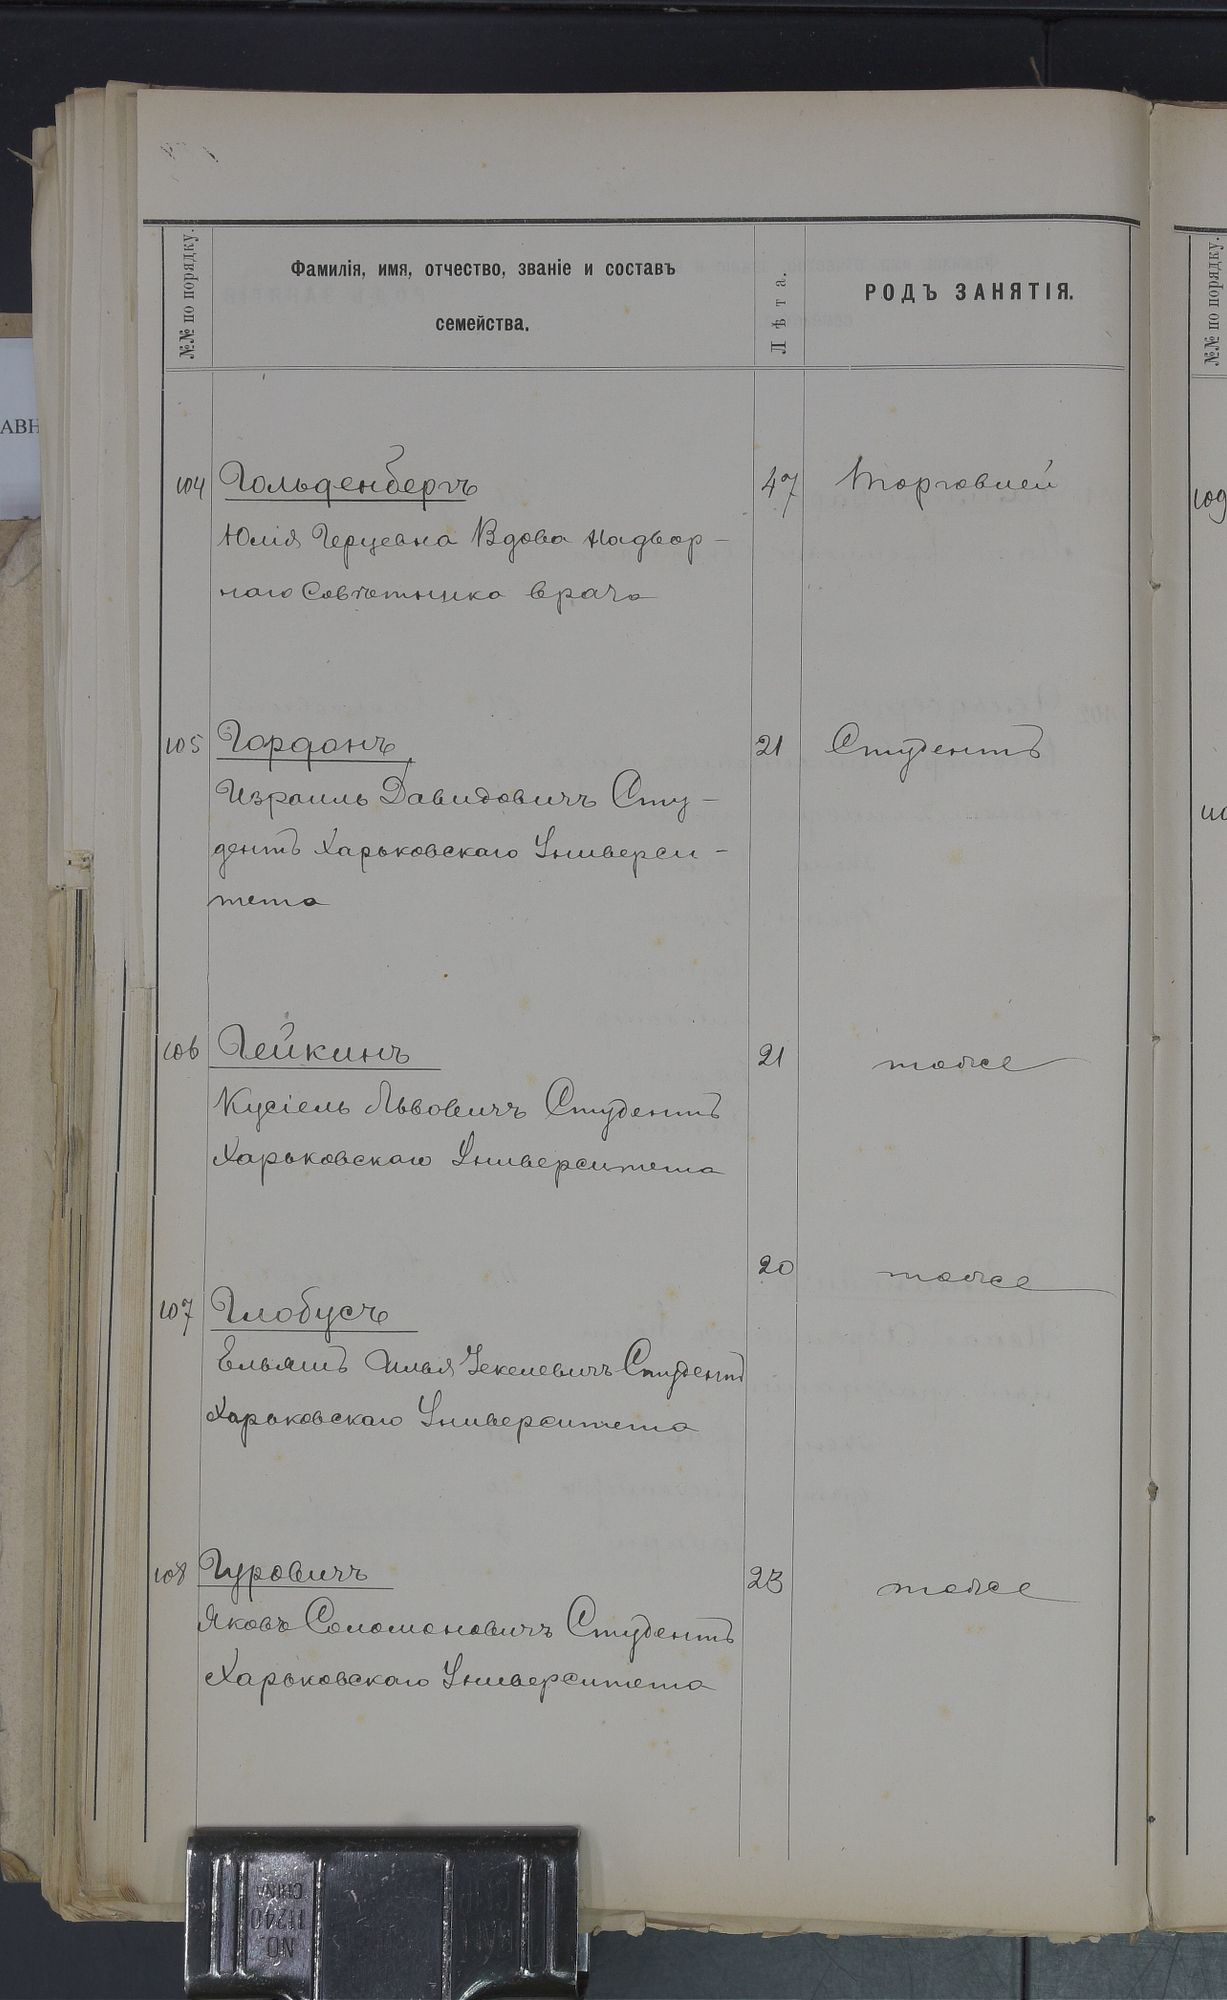 №№ по порядку.
Фамилія, имя, отчество, званіе и составъ
семейства.
Лѣта.
РОДЪ ЗАНЯТІЯ.
№№ по порядку.
АВН
104 Гольденбергъ 47 Торговлей
Юлія Герцевна Вдова Надвор-
наго Совѣтника врача
109
105 Гордонъ 21 Студентъ
Израиль Давидовичъ Сту-
дентъ Харьковскаго Универси-
тета
106 Гейкинъ 21 тоже
Кусіель Львовичъ Студентъ
Харьковскаго Университета
20 тоже
107 Глобусъ
Ельяшъ Илья Чекелевичъ Студентъ
Харьковскаго Университета
108 Гуровичъ 23 тоже
Яковъ Соломоновичъ Студентъ
Харьковскаго Университета
NO.
11240
CHINA